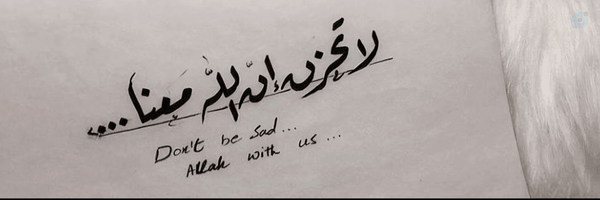 لا تحزن إن اللّٰه معنا....
Don't be sad...
Allah with us ...